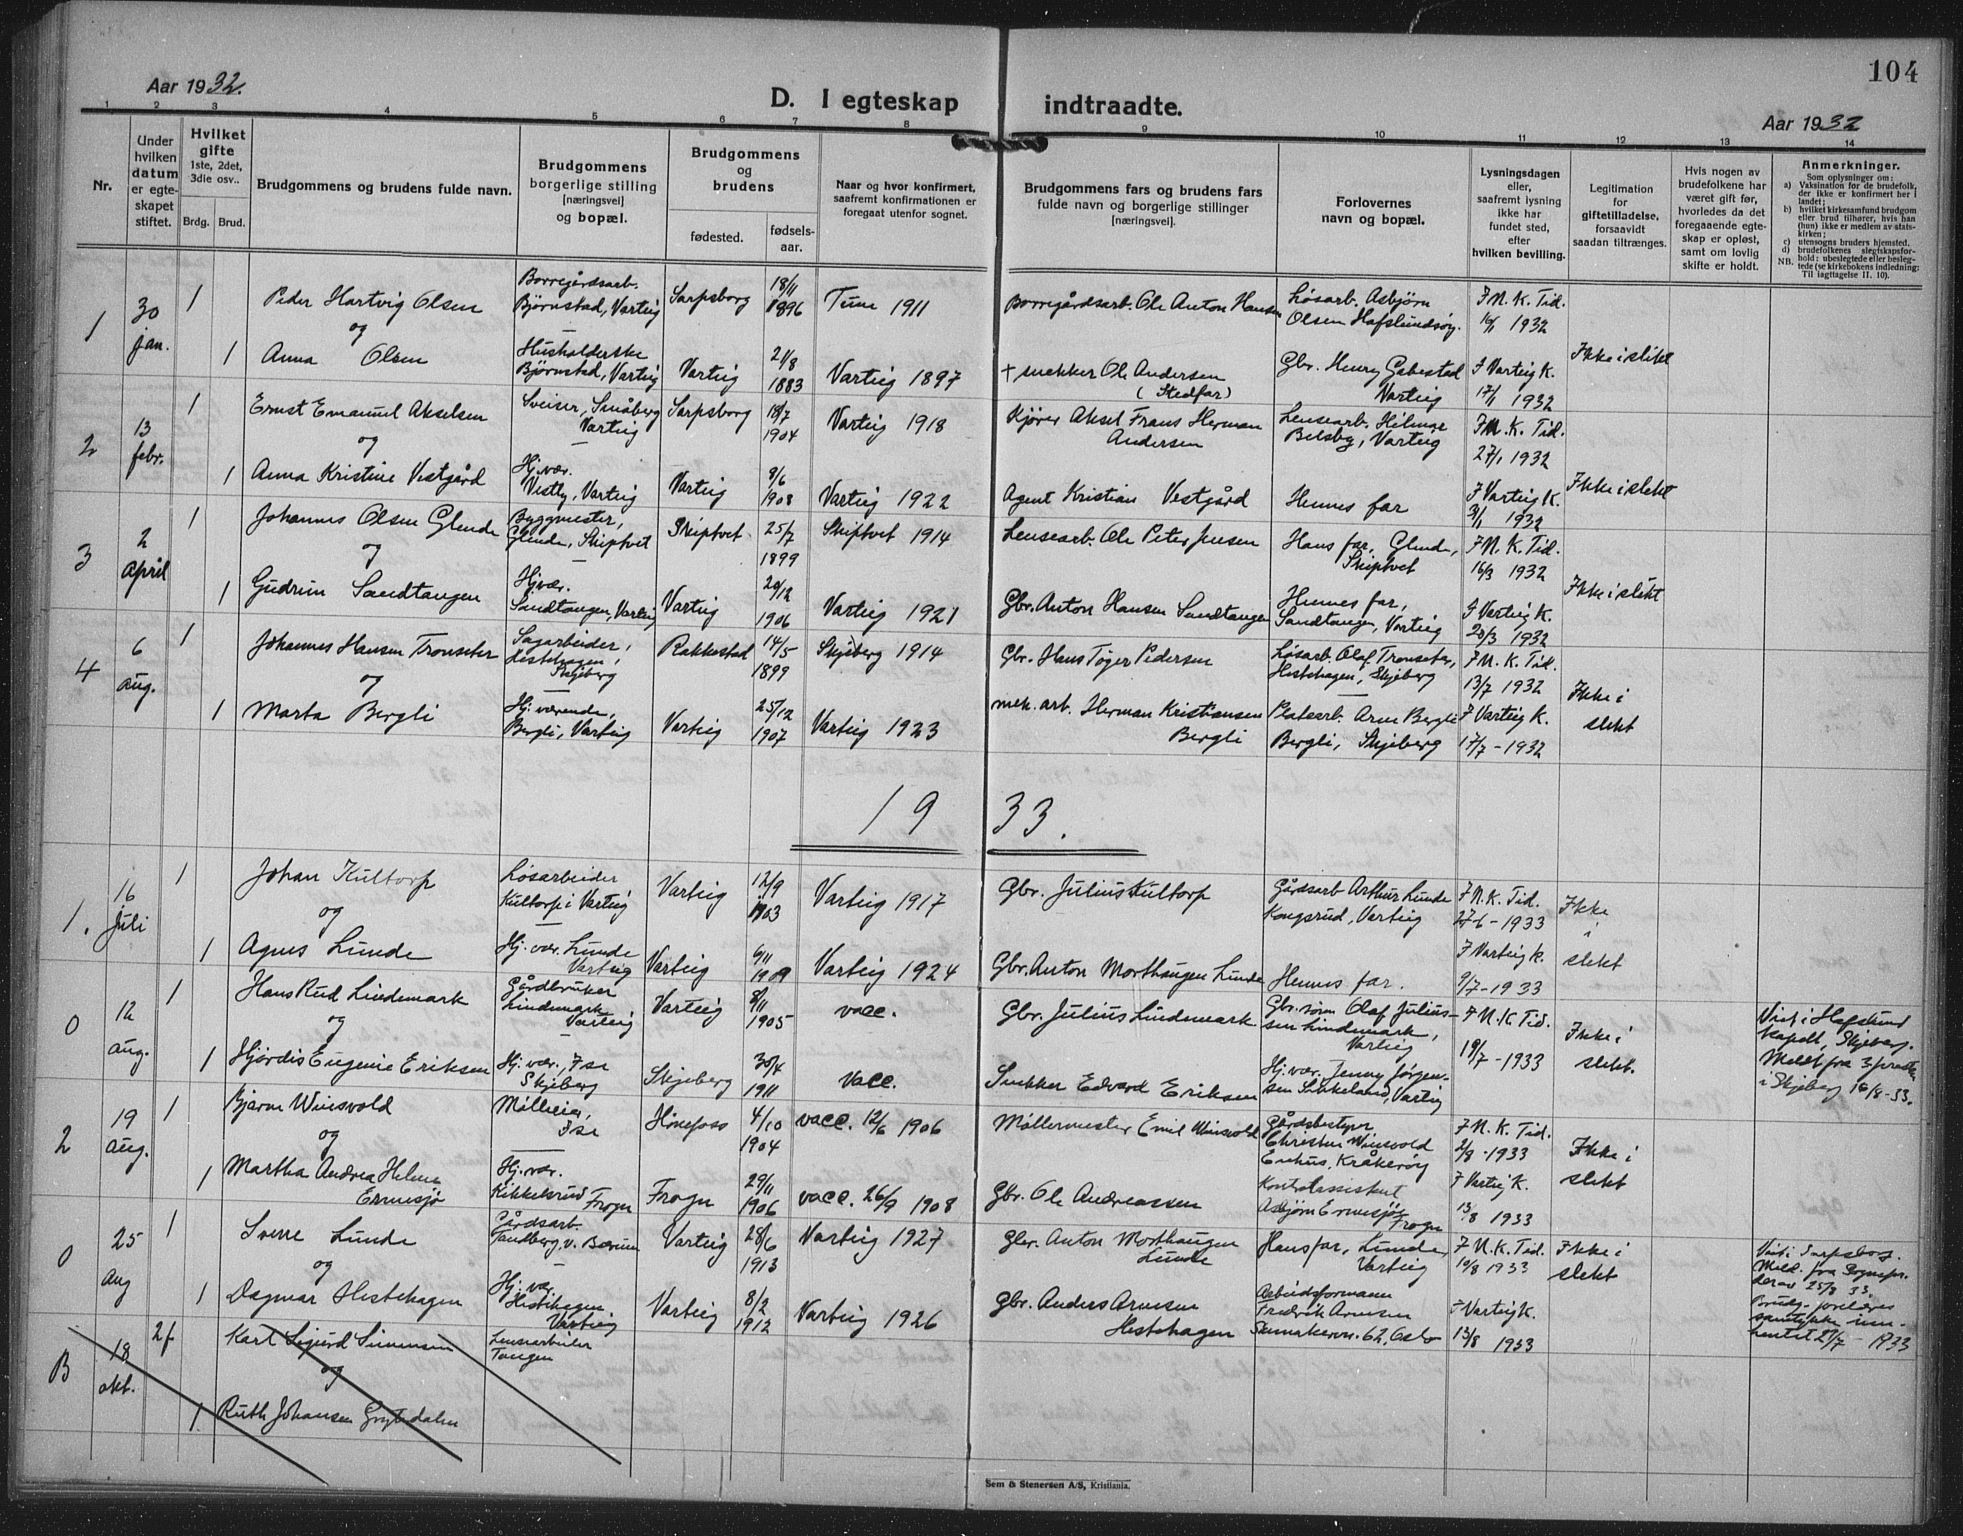 104
Aar 1932.
D. I egteskap indtraadte.
Aar 1932
1 2 3 4 5 6 7 8 9 10 11 12 13 14
Nr.
Under hvilken datum er egteskapet stiftet.
Hvilket gifte
1ste, 2det, 3die osv..
Brdg. Brud.
Brudgommens og brudens fulde navn.
Brudgommens borgerlige stilling [næringsvei] og bopæl.
Brudgommens og brudens
fødested.
fødselsaar.
Naar og hvor konfirmert, saafremt konfirmationen er foregaat utenfor sognet.
Brudgommens fars og brudens fars fulde navn og borgerlige stillinger [næringsvei].
Forlovernes navn og bopæl.
Lysningsdagen eller, saafremt lysning ikke har fundet sted, efter hvilken bevilling.
Legitimation for giftetilladelse, forsaavidt saadan tiltrænges.
Hvis nogen av brudefolkene har været gift før, hvorledes da det foregaaende egteskap er opløst, samt om lovlig skifte er holdt.
Anmerkninger.
Som oplysninger om:
a) Vaksination for de brudefolk, der ikke er konfirmert her i landet;
b) hvilket kirkesamfund brudgom eller brud tilhører, hvis han (hun) ikke er medlem av statskirken;
c) utensogns bruders hjemsted.
d) brudefolkenes slegtskapsforhold: ubeslegtede eller beslegtede (se kirkebokens indledning:
NB. Til iagttagelse II. 10).
1 30 jan. 1 Peder Hartvig Olsen Borregårdsarb. Bjørnstad, Varteig Sarpsborg 18/11 1896 Tune 1911 Borregårdsarb. Ole Anton Hansen Løsarb. Asbjørn Olsen Hafslundsøy. F N. K. Tid. 16/1 1932
og
1 Anna Olsen Husholderske Bjørnstad, Varteig Varteig 21/8 1883 Varteig 1897 + snekker Ole Andersen (Stedfar) Gbr. Henry Gabestad Varteig F Varteig K. 17/1 1932 Ikke i slekt
2 13 febr. 1 Ernst Emanuel Akselsen Sveiser, Småberg Varteig Sarpsborg 18/7 1904 Varteig 1918 Kjører Aksel Frans Herman Andersen Lensearb. Helmge Belsby, Varteig F N. K. Tid. 27/1 1932
og
1 Anna Kristine Vestgård Hj.vær. Vestby, Varteig Varteig 9/6 1908 Varteig 1922 Agent Kristian Vestgård Hennes far F Varteig K. 31/1 1932 Ikke i slekt
3 2 April 1 Johannes Olsen Glende Byggmester, Glende, Skiptvet Skiptvet 25/7 1899 Skiptvet 1914 Lensearb. Ole Peter Jensen Hans far, Glende, Skiptvet F N. K. Tid. 16/3 1932
og
1 Gudrun Sandtangen Hj.vær. Sandtangen, Varteig Varteig 20/12 1906 Varteig 1921 Gbr. Anton Hansen Sandtangen Hennes far, Sandtangen, Varteig F Varteig K. 20/3 1932 Ikke i slekt
4 6 aug. 1 Johannes Hansen Tronseter Sagarbeider, Hestehagen, Skjeberg Rakkestad 14/5 1899 Skjeberg 1914 Gbr. Hans Tøger Pedersen Løsarb. Olaf Tronseter, Hestehagen, Skjeberg F N. K. Tid. 13/7 1932
og
1 Marta Bergli Hj. værende, Bergli, Varteig Varteig 25/12 1907 Varteig 1923 mek. arb. Herman Kristiansen Bergli Platearb. Arne Bergli Bergli, Skjeberg F Varteig K. 17/7 - 1932 Ikke i slekt
1933.
1. 16 Juli 1 Johan Kultorp Løsarbeider Kultorp i Varteig Varteig 12/9 1903 Varteig 1917 Gbr. Julius Kultorp Gårdsarb Arthur Lunde Kongsrud, Varteig F N. K. Tid. 27-6 - 1933
og
1 Agnes Lunde Hj. vær. Lunde Varteig Varteig 6/11 1909 Varteig 1924 Gbr. Anton Morthaugen Lunde Hennes far. F Varteig K. 9/7 - 1933 Ikke i slekt
0 12 aug. 1 Hans Rud Lindemark Gårdbruker Lindemark Varteig Varteig 8/11 1905 vacc. Gbr. Julius Lindemark Gbr. sønn Olaf Juliussen Lindemark, Varteig F N. K Tid. 19/7 - 1933
og
1 Hjørdis Eugenie Eriksen Hj. vær., Ise Skjeberg Skjeberg 30/4 1911 vacc. Snekker Edvard Eriksen Hj. vær. Jenny Jørgensen Sikkeland, Varteig Ikke i slekt. Viet i Hafslund kapell, Skjeberg. Meldt fra 3. prest i Skjeberg 16/8 - 33.
2 19 aug. 1 Bjarne Winsvold Mølleier, Ise Hønefoss 4/10 1904 vacc. 12/6 1906 Møllermester Emil Winsvold Gårdsbestyrer Christen Winsvold Enhus, Kråkerøy F N. K. Tid. 2/8 - 1933
og
1 Martha Andrea Helene Ermesjø Hj. vær. Kikkelsrud Frogn Frogn 29/11 1906 vacc. 26/9 1908 Gbr. Ole Andreassen Kontrolassistent Asbjørn Ermesjø, Frogn F Varteig K. 13/8 1933 Ikke i slekt
0 25 aug 1 Sverre Lunde Gårdsarb. Tandberg v. Bærum Varteig 28/6 1913 Varteig 1927 Gbr. Anton Morthaugen Lunde Hans far, Lunde, Varteig F N. K. Tid. 10/8 1933 Ikke i slekt
og
1 Dagmar Hestehagen Hj. vær. Hestehagen, Varteig Varteig 8/2 1912 Varteig 1926 Gbr. Anders Arnesen Hestehagen Arbeidsformann Fredrik Arnesen 62, Oslo F Varteig K. 13/8 1933 Viet i Sarpsborg. Meld. fra Sognepr. der av 25/8 33.
B 18 okt. 2 f Karl Sigurd Simensen Lensearbeider Tangen
og
1. Ruth Johansen Grytedalen
Sem & Stenersen A/S, Kristiania.